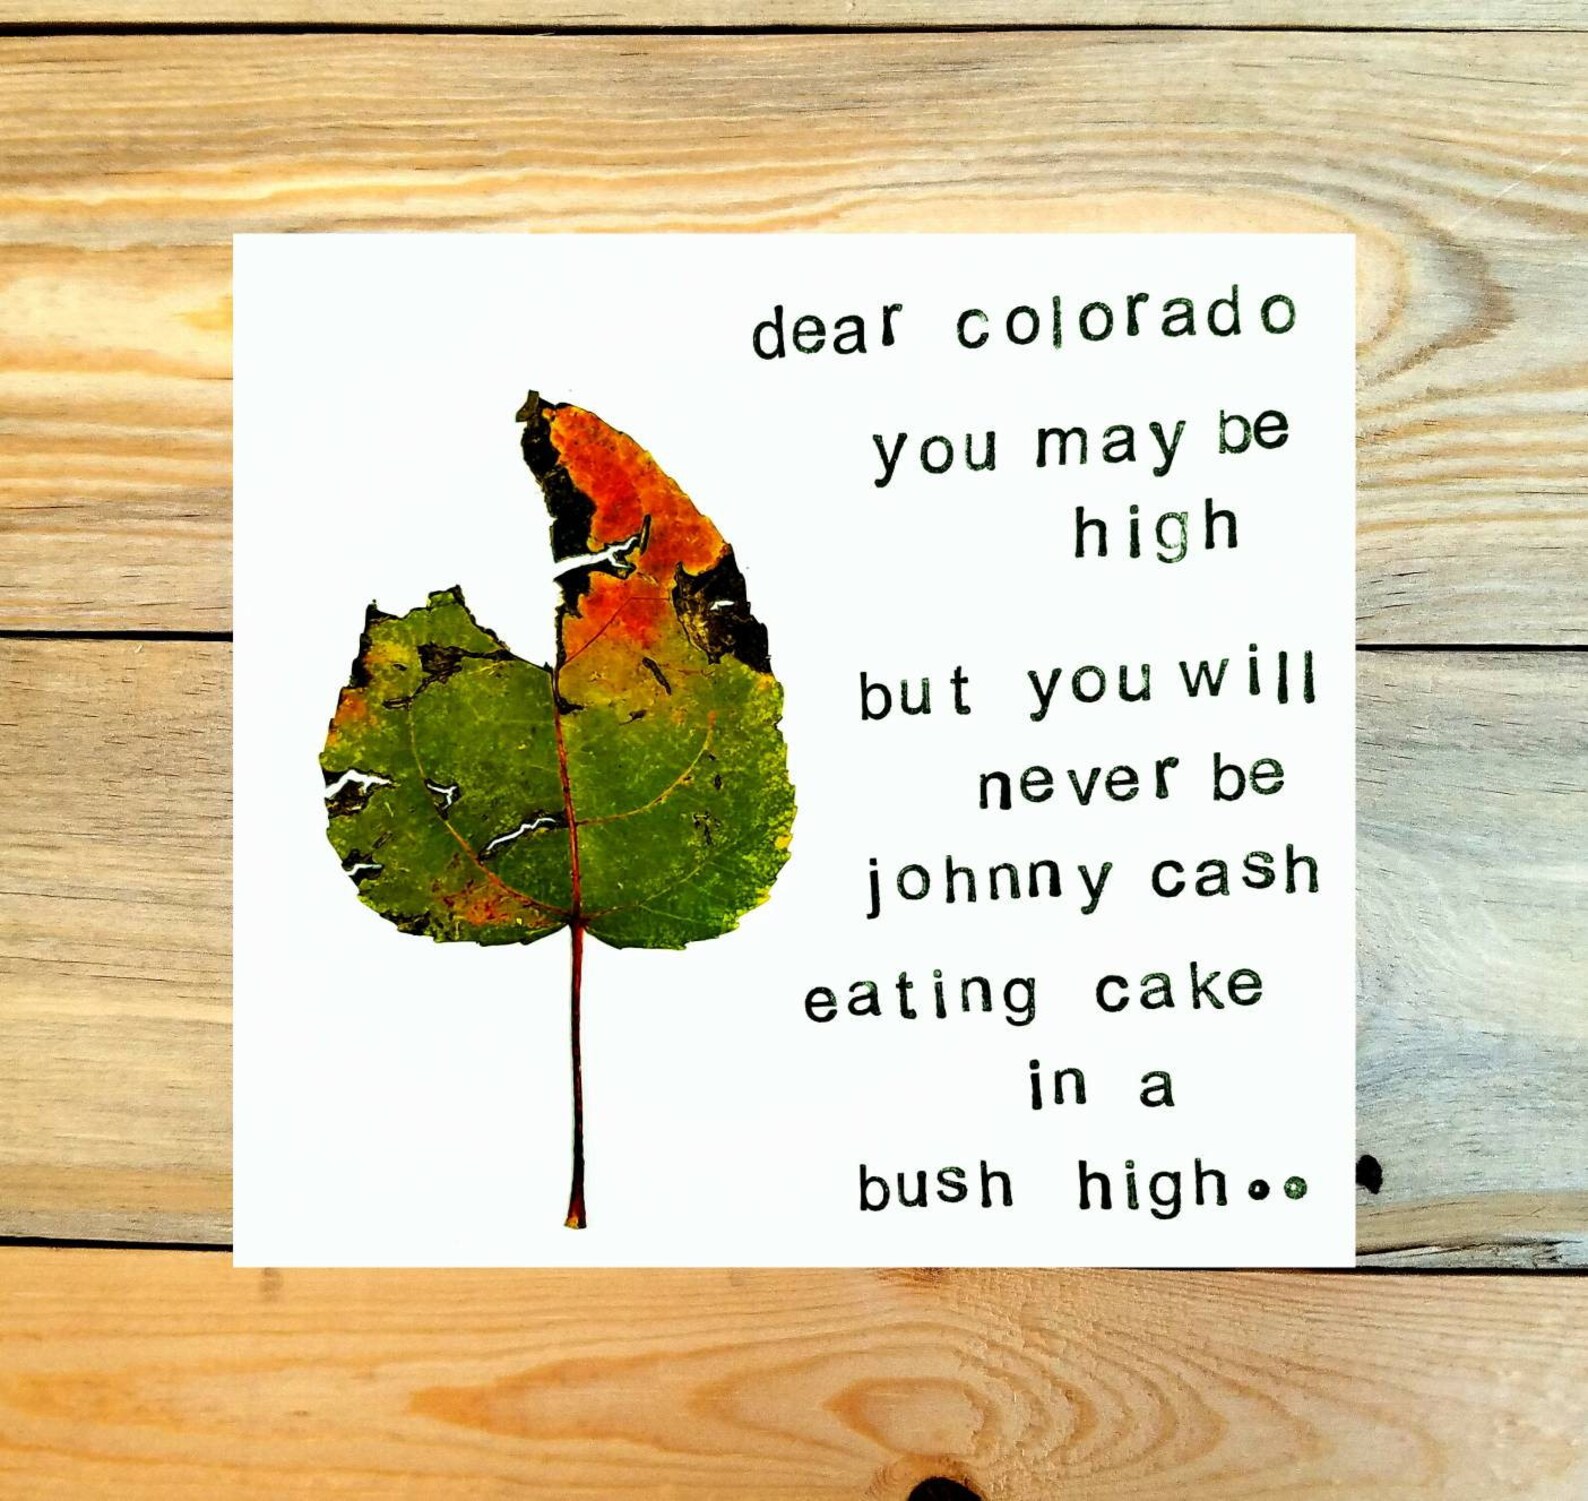 dear colorado
you may be
high
but you will
never be
johnny cash
eating cake
in a
bush high..